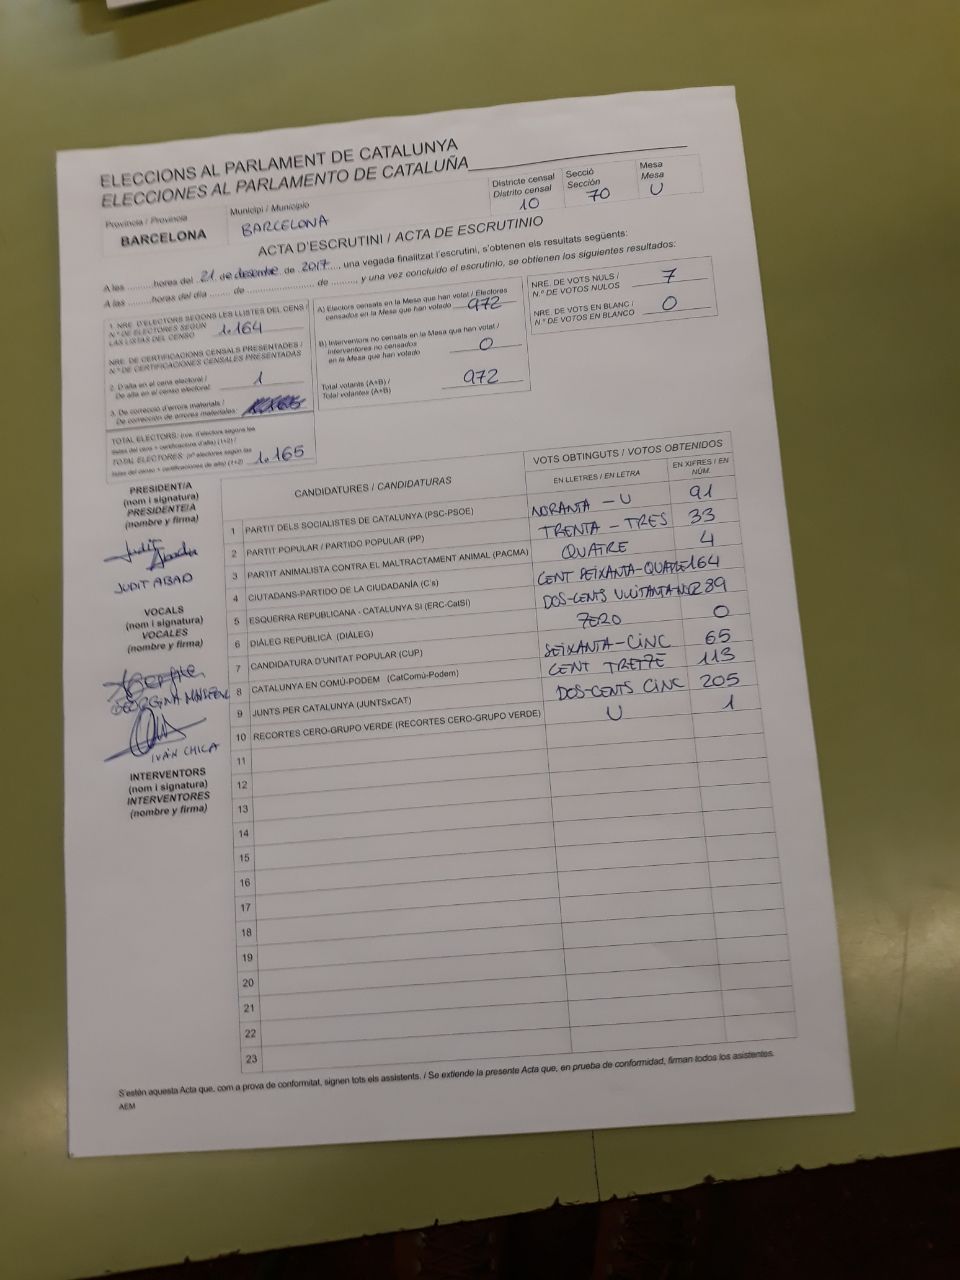 ELECCIONS AL PARLAMENT DE CATALUNYA
ELECCIONES AL PARLAMENTO DE CATALUÑA
Província / Provincia
BARCELONA
Municipi / Municipio
BARCELONA
Districte censal
Distrito censal
10
Secció
Sección
70
Mesa
Mesa
U
ACTA D'ESCRUTINI / ACTA DE ESCRUTINIO
A les ..........hores del 21 de desembre de 2017..., una vegada finalitzat l'escrutini, s'obtenen els resultats següents:
A las ..........horas del día ........ de ........................... de .......... y una vez concluido el escrutinio, se obtienen los siguientes resultados:
1. NRE. D'ELECTORS SEGONS LES LLISTES DEL CENS /
N.º DE ELECTORES SEGÚN
LAS LISTAS DEL CENSO
1.164
NRE. DE CERTIFICACIONS CENSALS PRESENTADES /
N.º DE CERTIFICACIONES CENSALES PRESENTADAS
2. D'alta en el cens electoral /
De alta en el censo electoral:
1
3. De correcció d'errors materials /
De corrección de errores materiales:
TOTAL ELECTORS: (nre. d'electors segons les
llistes del cens + certificacions d'alta) (1+2) /
TOTAL ELECTORES: (nº electores según las
listas del censo + certificaciones de alta) (1+2)
1.165
A) Electors censats en la Mesa que han votat / Electores
censados en la Mesa que han votado
972
B) Interventors no censats en la Mesa que han votat /
Interventores no censados
en la Mesa que han votado
0
Total votants (A+B) /
Total votantes (A+B)
972
NRE. DE VOTS NULS /
N.º DE VOTOS NULOS
7
NRE. DE VOTS EN BLANC /
N.º DE VOTOS EN BLANCO
0
PRESIDENT/A
(nom i signatura)
PRESIDENTE/A
(nombre y firma)
JUDIT ABAD
VOCALS
(nom i signatura)
VOCALES
(nombre y firma)
GEORGINA
IVÁN CHICA
INTERVENTORS
(nom i signatura)
INTERVENTORES
(nombre y firma)
CANDIDATURES / CANDIDATURAS
VOTS OBTINGUTS / VOTOS OBTENIDOS
EN LLETRES / EN LETRA
EN XIFRES / EN NÚM.
1 PARTIT DELS SOCIALISTES DE CATALUNYA (PSC-PSOE) NORANTA - U 91
2 PARTIT POPULAR / PARTIDO POPULAR (PP) TRENTA - TRES 33
3 PARTIT ANIMALISTA CONTRA EL MALTRACTAMENT ANIMAL (PACMA) QUATRE 4
4 CIUTADANS-PARTIDO DE LA CIUDADANÍA (C's) CENT SEIXANTA-QUATRE 164
5 ESQUERRA REPUBLICANA - CATALUNYA SÍ (ERC-CatSí) DOS-CENTS VUITANTA-NOU 289
6 DIÀLEG REPUBLICÀ (DIÀLEG) ZERO 0
7 CANDIDATURA D'UNITAT POPULAR (CUP) SEIXANTA-CINC 65
8 CATALUNYA EN COMÚ-PODEM (CatComú-Podem) CENT TRETZE 113
9 JUNTS PER CATALUNYA (JUNTSxCAT) DOS-CENTS CINC 205
10 RECORTES CERO-GRUPO VERDE (RECORTES CERO-GRUPO VERDE) U 1
11
12
13
14
15
16
17
18
19
20
21
22
23
S'estén aquesta Acta que, com a prova de conformitat, signen tots els assistents. / Se extiende la presente Acta que, en prueba de conformidad, firman todos los asistentes.
AEM